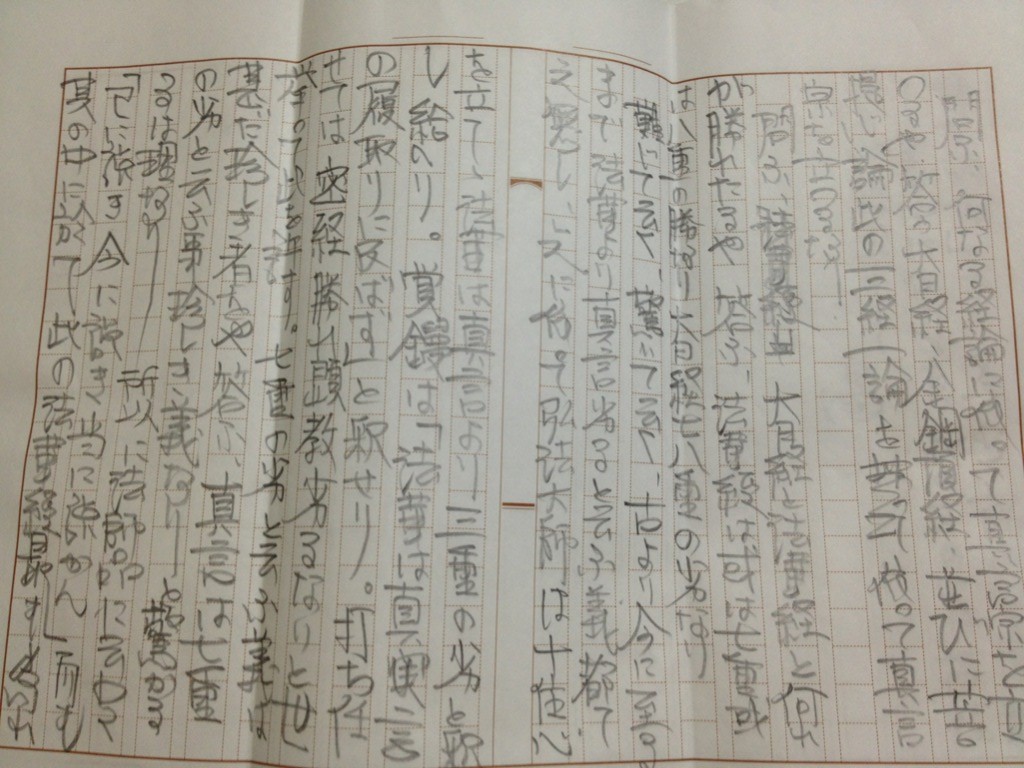 問ふ 何なる経論に依って真言宗を立つ
るや 答ふ 大日経・金剛頂経・並びに菩提
心論 此の三経一論を以て 真言
宗を立つるなり
問ふ 大日経と法華経と何れ
か勝れたるや 答ふ 法華経は或は七重或
は八重の勝なり 大日経は七八重の劣なり
難じて云く 古より今に至る
まで法華より真言劣るとと云ふ義都て
之無し 之に依って弘法大師は十住心
を立てて法華は真言より三重の劣と釈
し給へり。覚鑁は法華は真言
の履取りに及ばずと釈せり。打ち任
せては密経勝れ顕教劣るなりと世
挙って此を許す。七重の劣と云ふ義は
甚だ珍しき者をや 答ふ 真言は七重
の劣と云ふ事珍しき義なりと驚かる
るは理なり 所以に法師品に云わく
「已に説き今に説き当に説かん 而も
其の中に於て此の法華経最も